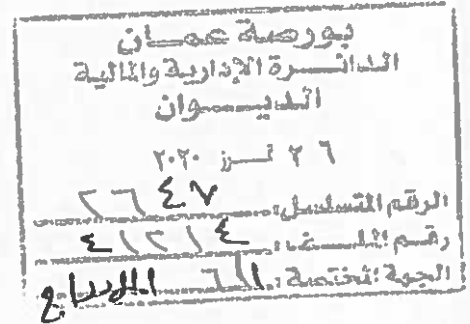 بورصة عمان
الدائرة الإدارية والمالية
الديوان
٢٦ تموز ٢٠٢٠
الرقم المتسلسل: ٢٦٤٧
رقم الملف: ٤١٢١٤
الجهة المختصة: